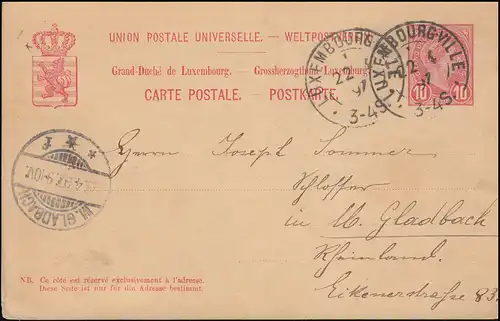 UNION POSTALE UNIVERSELLE. — WELTPOSTVEREIN.
Grand-Duché de Luxembourg. — Grossherzogthum Luxemburg.
CARTE POSTALE. — POSTKARTE.
LUXEMBOURG-VILLE
22 4 97
3-4S
LUXEMBOURG-VILLE
22 4 97
3-4S
10 10
Herrn Joseph Sommer
Schlosser
in M. Gladbach
Rheinland.
Eikenerstraße 83.
M. GLADBACH
4.97. 9-10V.
f
NB. Ce côté est réservé exclusivement à l'adresse.
Diese Seite ist nur für die Adresse bestimmt.